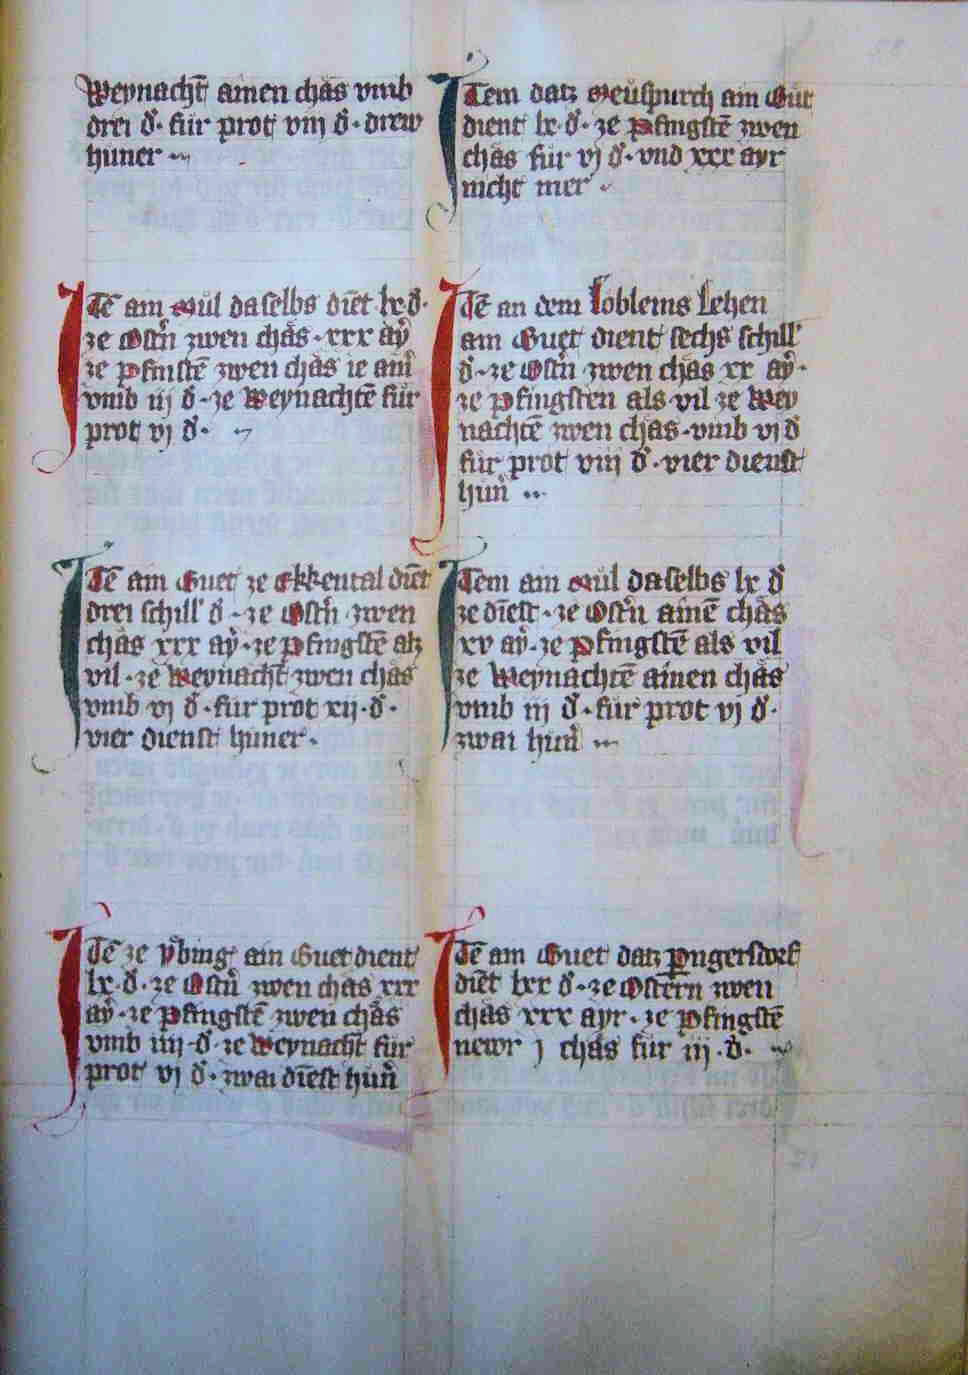 Weynacht̄ ainen chäs vmb
drei d̄· für prot viij d̄· drew
hüner
Itē am Mül daselbs diēt lx d̄·
ze Ostn̄ zwen chäs· xxx aÿ
ze Pfinstē zwen chäs ie ain̄
vmb iij d̄· ze Weynachtē für
prot vj d̄·
Itē am Guet ze Ekkental diēt
drei schill' d̄· ze Ostn̄ zwen
chäs xxx aÿ· ze Pfingstē alz
vil· ze Weynacht̄ zwen chäs
vmb vj d̄· für prot xij· d̄·
vier dienst hüner·
Itē ze ain Guet dient
lx· d̄· ze Ostn̄ zwen chäs xxx
aÿ· ze Pfingstē zwen chäs
vmb iiij d̄· ze Weynacht für
prot vj d̄· zwai diēst hün̄
Item datz Neuspurch ain Gut
dient lx· d̄· ze Pfingstē zwen
chäs für vj d̄· vnd xxx ayr
nicht mer
Itē an dem Loblems Lehen
am Guet dient sechs schill'
d̄· ze Ostn̄ zwen chäs xx aÿ·
ze Pfingsten als vil ze Wey
nachtē zwen chäs· vmb vj d̄
für prot viij d̄· vier dienst
hün̄
Item am Mül daselbs lx d̄
ze diēst· ze Ostn̄ ainē chäs
xv aÿ· ze Pfingstē als vil
ze Weynachtē ainen chäs
vmb iij d̄· für prot vj d̄·
zwai hün̄
Itē am Guet datz Pngersdorf
diēt lxx d̄· ze Ostern zwen
chäs xxx ayr· ze Pfingstē
newr j chäs für iij· d̄·